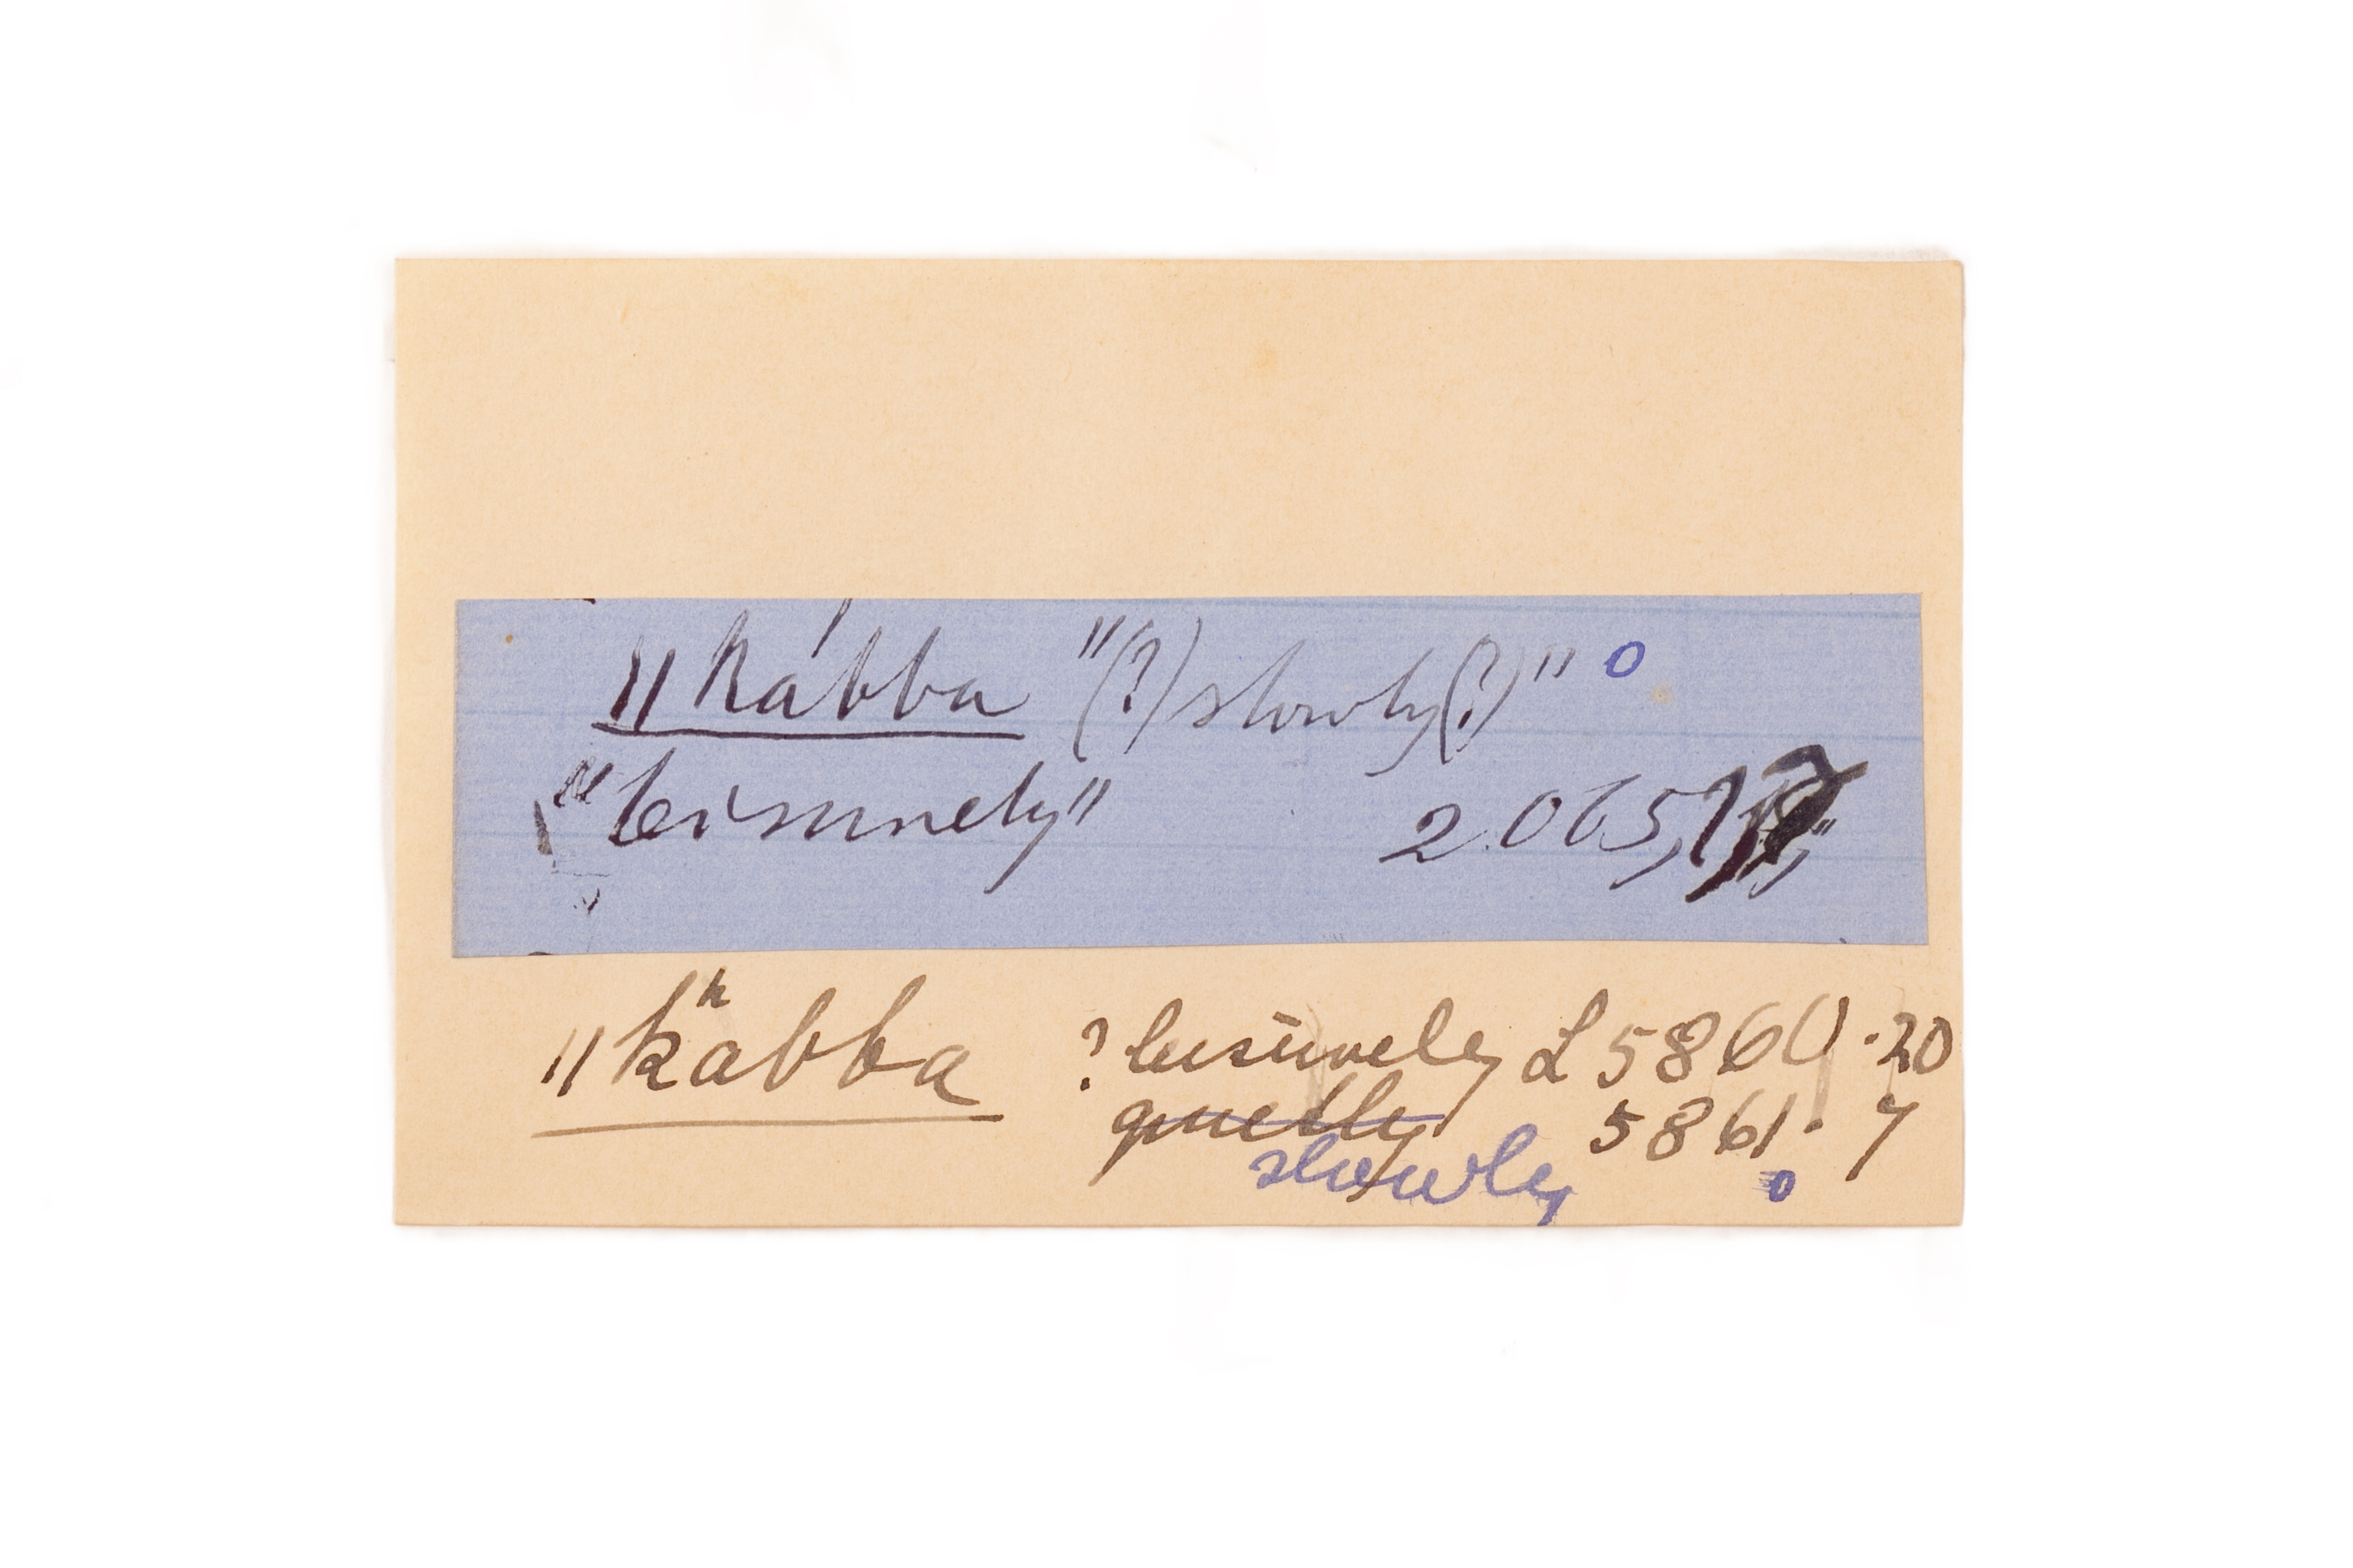 ǁkábba "(?) slowly (?)" o
"leisurely" 2.065,
ǁkʰabba ? leisurely L 5860 · 20
quietly 5861 · 7
slowly o